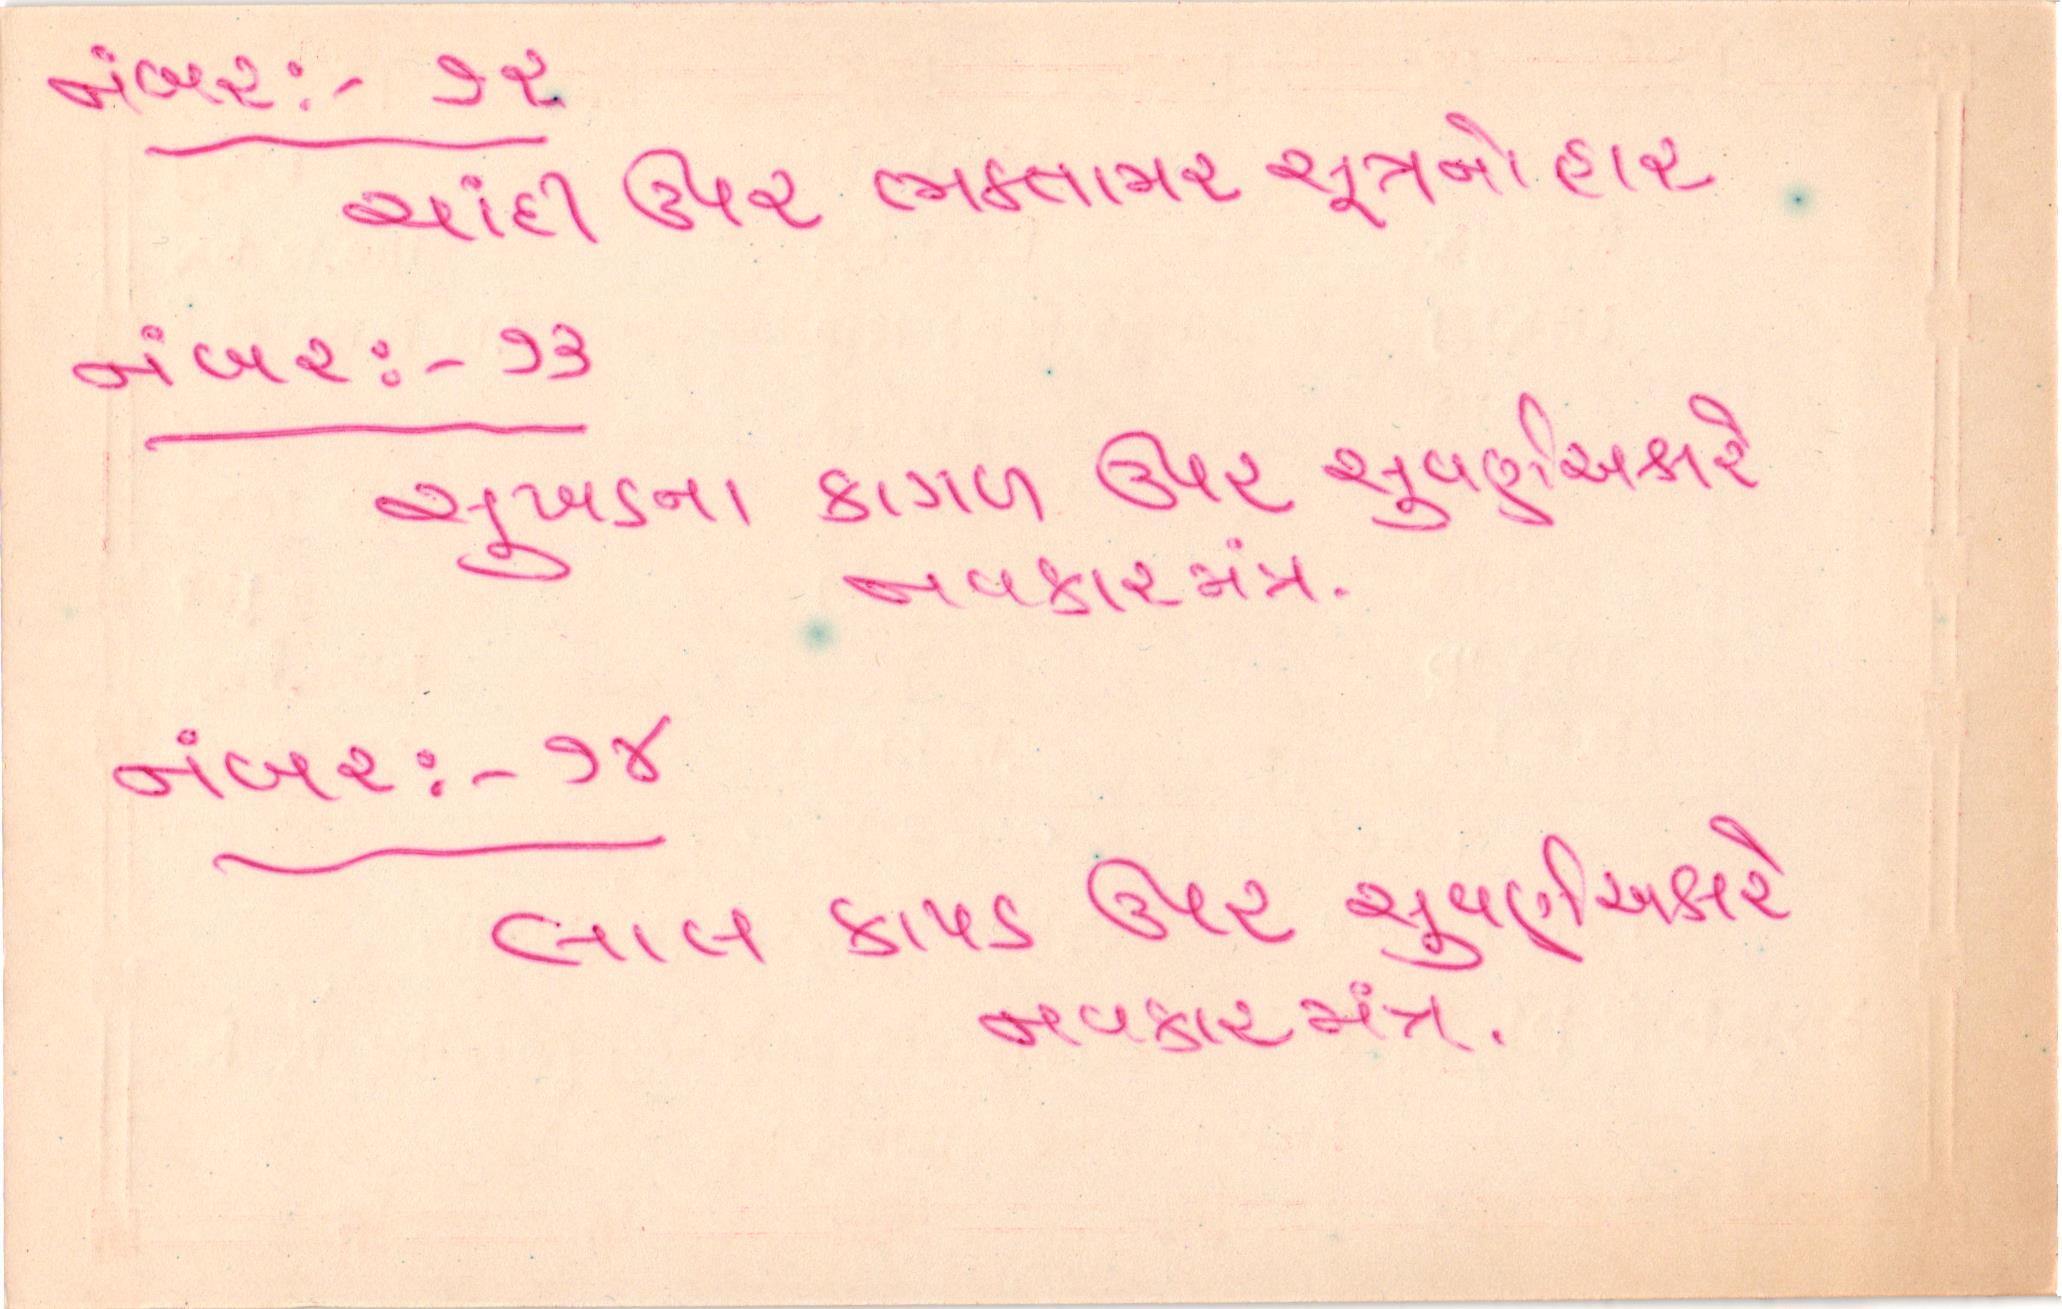 નંબર:- ૭૨
ચાંદી ઉપર ભક્તામર સૂત્રનો હાર
નંબર:- ૭૩
સુખડના કાગળ ઉપર સુવર્ણઅક્ષરે
નવકારમંત્ર.
નંબર:- ૭૪
લાલ કાપડ ઉપર સુવર્ણઅક્ષરે
નવકારમંત્ર.